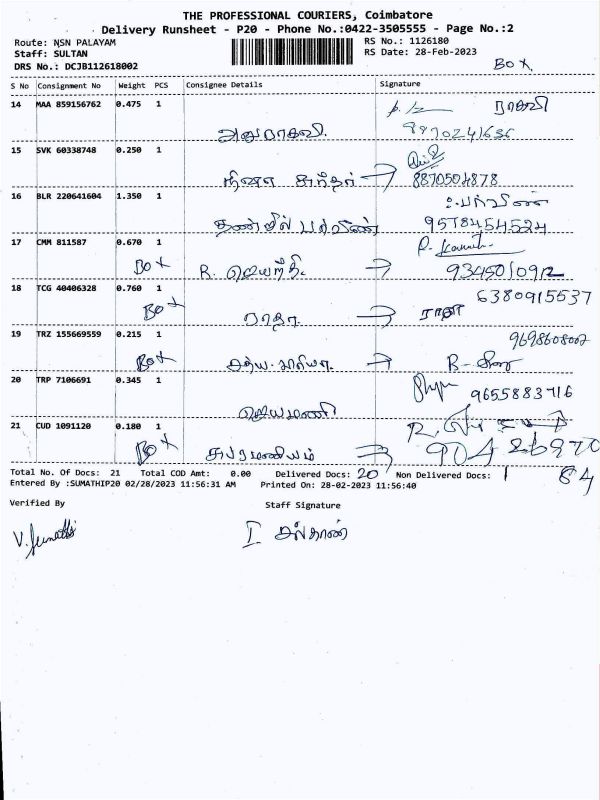 THE PROFESSIONAL COURIERS, Coimbatore
Delivery Runsheet - P20 - Phone No.:0422-3505555 - Page No.:2
Route: NSN PALAYAM
RS No.: 1126180
Staff: SULTAN
RS Date: 28-Feb-2023
DRS No.: DCJB112618002
Box
S No Consignment No Weight PCS Consignee Details Signature
14 MAA 859156762 0.475 1
ராகவி
அனுராகவி.
15 SVK 60338748 0.250 1
8870504878
16 BLR 220641604 1.350 1
பர்வீண்
9578454524
17 CMM 811587 0.670 1
Box R. ஜெயந்தி. → 9345010912
18 TCG 40406328 0.760 1
6380915537
Box ராதா →
19 TRZ 155669559 0.215 1
9698608002
Box →
20 TRP 7106691 0.345 1
9655883716
ஜெயமணி
21 CUD 1091120 0.180 1
Box சுப்ரமணியம் →
Total No. Of Docs: 21 Total COD Amt: 0.00 Delivered Docs: 20 Non Delivered Docs: 1
84
Entered By :SUMATHIP20 02/28/2023 11:56:31 AM Printed On: 28-02-2023 11:56:40
Verified By Staff Signature